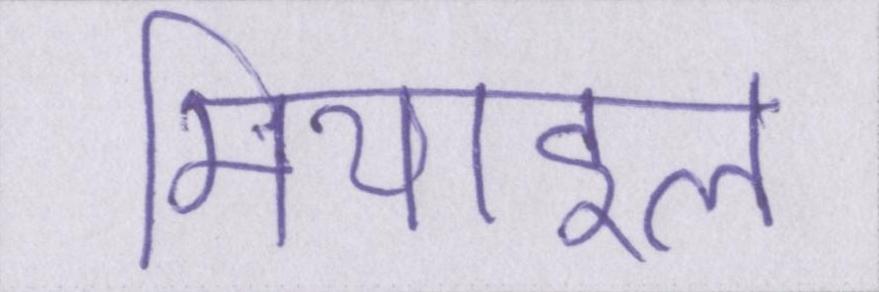 मियाइल